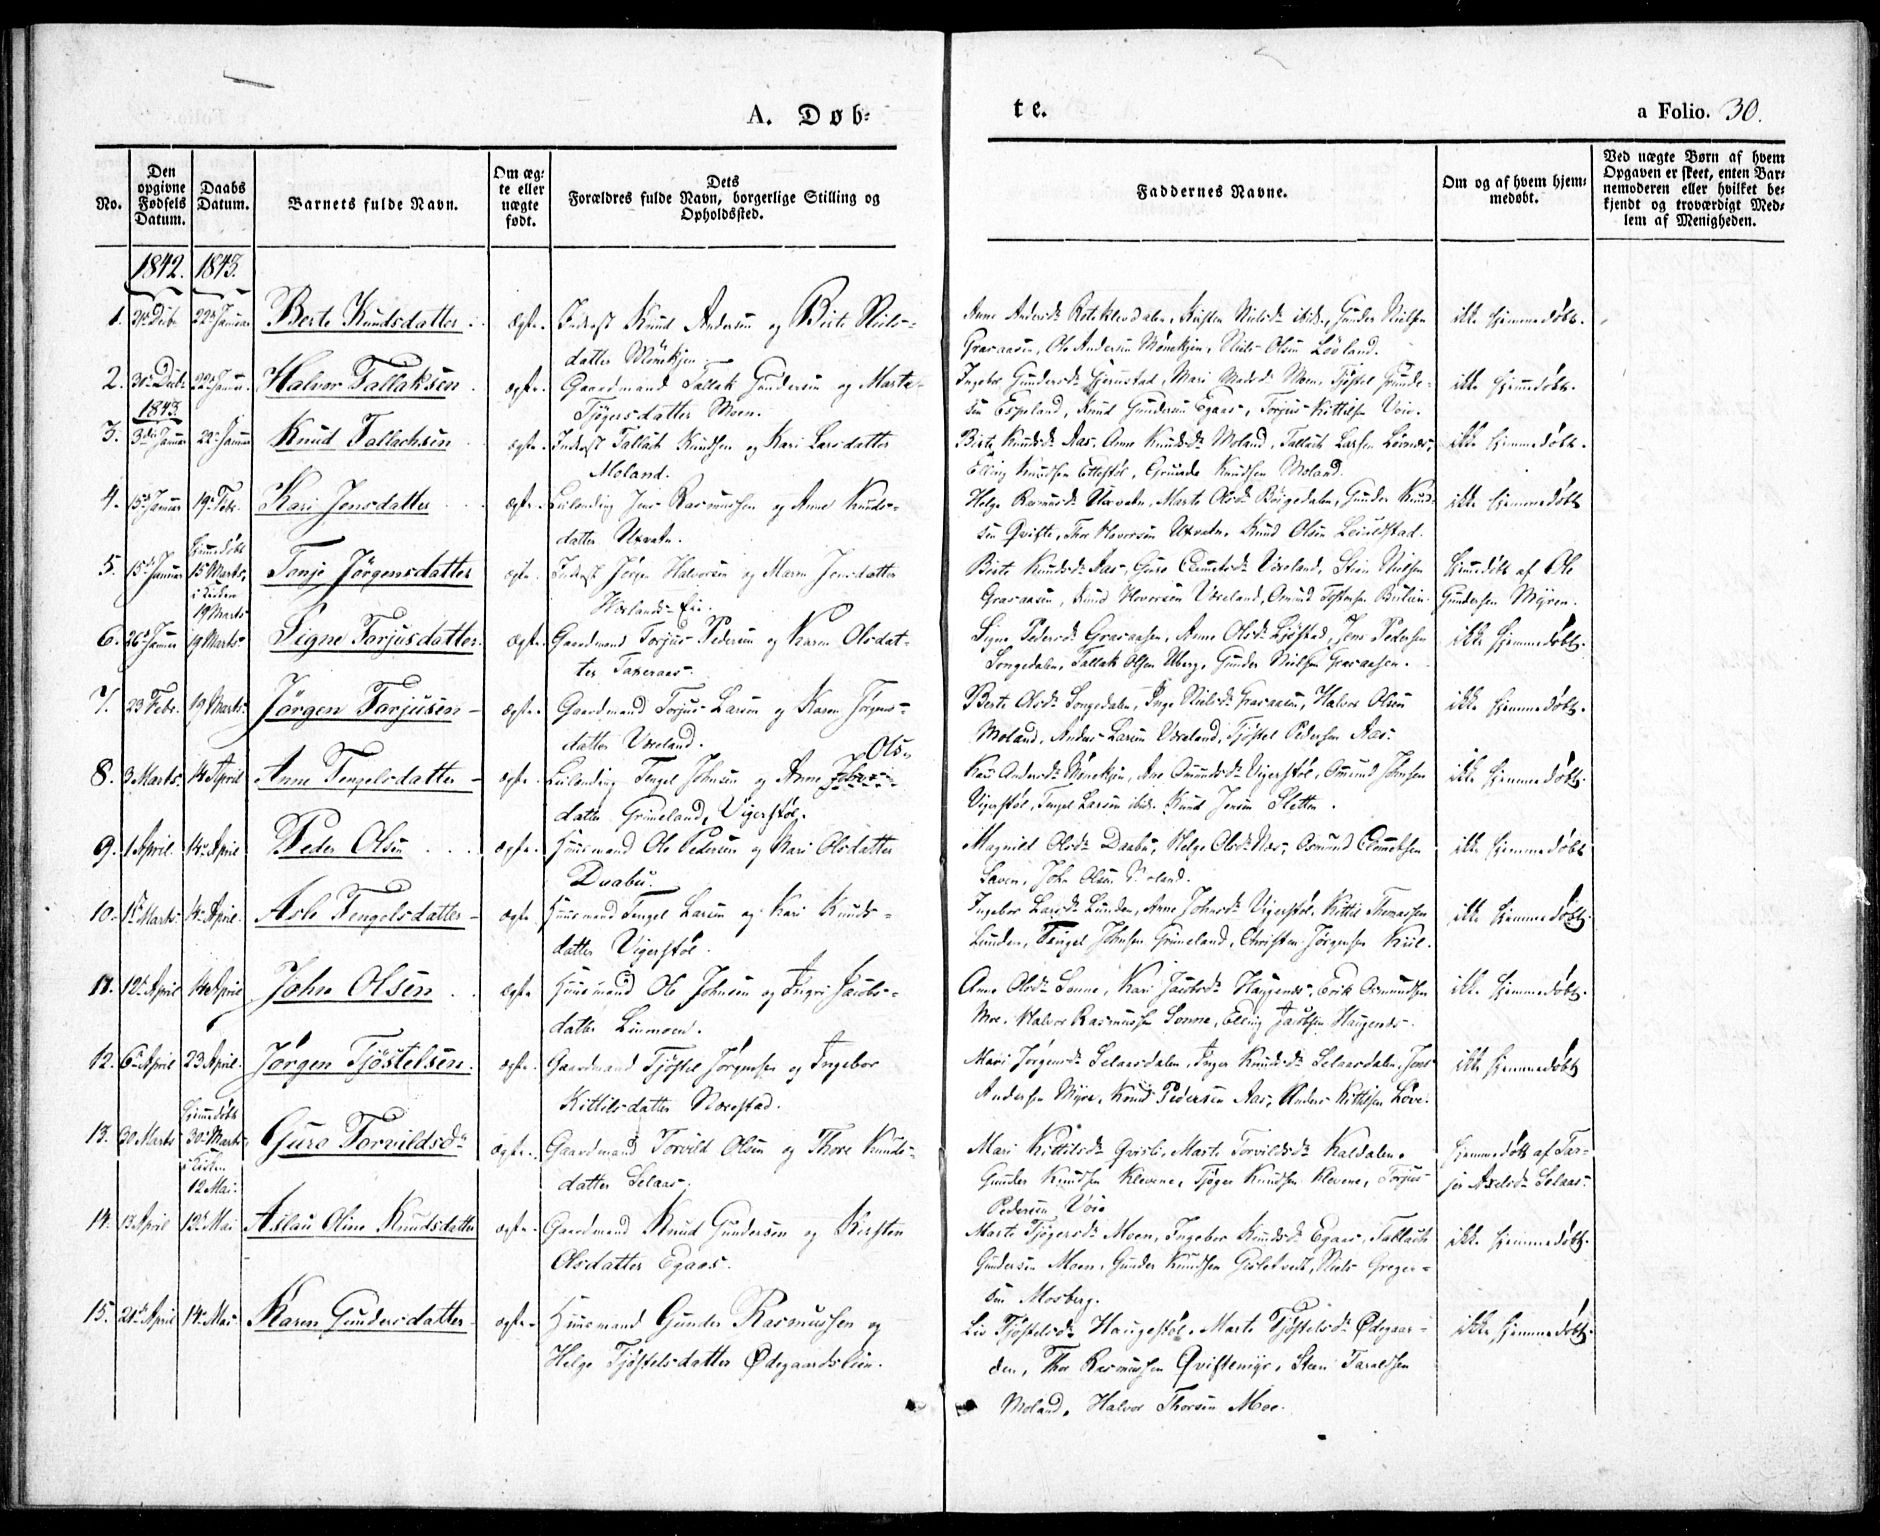 A. Døb=
te.
a Folio. 30.
No.
Den opgivne Fødsels Datum.
Daabs Datum.
Barnets fulde Navn.
Om æg=te eller uægte født.
Dets Forældres fulde Navn, borgerlige Stilling og Opholdssted.
Faddernes Navne.
Om og af hvem hjem=medøbt.
Ved uægte Børn af hvem Opgaven er skeet, enten Bar=nemoderen eller hvilket be=kjendt og troværdigt Med=lem af Menigheden.
1842. 1843.
1. 22 Januar Berte Knudsdatter ægte. Inderst Knud Andersen og Berte Niels=
datter Mönekjen.
Kirsten Nielsdr ibid., Gunder Nielsen
Gravaasen, Ole Andersen Mönekjen, Niels Olsen Lövland.
ikke hjemmedöbt.
2. 22 Januar Halvor Tallaksen ægte. Gaardmand Tallak Gundersen og Marte
Tjögersdatter Moen.
Ingebor Gundersdr Gjerustad, Mari Madsdr Moen, Tjöstel Gunder=
sen Espeland, Knud Gundersen Egaas, Torjus Kittilsen Voie.
ikke hjemmedöbt.
1843
3. 3die Januar 22 Januar Knud Tallachsen ægte. Inderst Tallak Knudsen og Kari Larsdatter
Moland.
Berte Knudsdr Aas, Anne Knudsdr Moland, Tallak Larsen
Elling Knudsen Ettestöl, Knudsen Moland.
ikke hjemmedöbt.
4. 15 Januar 19 Febr. Kari Jensdatter ægte. Leilending Jens Rasmussen og Anne Knuds=
datter Uxvatn.
Helge Rasmusdr Uxvatn, Marte Olsdr Börgedalen, Gunder Knud=
sen Qviste, Thor Hovorsen Uxvatn, Knud Olsen
ikke hjemmedöbt
5. 15 Januar hjemmedöbt 15 Marts, i Kirken 19 Marts Tonje Jörgensdatter ægte. Inderst Jörgen Halvorsen og Maren Jensdatter
Eie.
Berte Knudsdr Aas, Guro Væreland, Sten Nielsen
Gravaasen, Knud Hovorsen Væreland, Osmund
hjemmedöbt af Ole
Gundersen Myren.
6. 26 Januar 19 Marts Signe Torjusdatter. ægte. Gaardmand Torjus Pedersen og Karen Olsdat=
ter Taxeraas.
Signe Pedersdr Gravaasen, Anne Olsdr Ljöstad, Jens Pedersen
Songedalen, Tallak Olsen Uberg, Gunder Nielsen Gravaasen.
ikke hjemmedöbt.
7. 23 Febr. 19 Marts Jörgen Torjusen ægte. Gaardmand Torjus Larsen og Karen Jörgens=
datter Væreland.
Berte Olsdr Songedalen, Inge Nielsdr Gravaasen, Halvor Olsen
Moland, Anders Larsen Væreland, Tjöstel Pedersen Aas.
ikke hjemmedöbt.
8. 3 Marts 14 April Anne Tengelsdatter ægte. Leilending Tengel Johnsen og Anne Ols=
datter Grimeland, Vigerstöl.
Kari Andersdr Mönekjen, Ane Osmundsdr Vigerstöl, Osmund Johnsen
Vigerstöl, Tengel Larsen ibid. Knud Jensen Sletten.
ikke hjemmedöbt
9. 1 April. 14 April Peder Olsen ægte. Huusmand Ole Pedersen og Mari Olsdatter
Daabu.
Magnild Olsdr Daabu, Helge Olsdr Næs, Osmund Clemetsen
Laven, John Olsen
ikke hjemmedöbt
10. 1 Marts 14 April. Asle Tengelsdatter ægte Huusmand Tengel Larsen og Kari Knuds=
datter Vigerstöl.
Ingebor Larsdr Lunden, Anne Johnsdr Vigerstöl, Kittil Thomassen
Lunden, Tengel Johnsen Grimeland, Christen Jörgensen Kiil.
ikke hjemmedöbt.
11. 12 April 14 April John Olsen ægte Huusmand Ole Johnsen og Ingri Jacobs=
datter Linmoen.
Anne Olsdr Sonne, Kari Jacobsdr Haugends, Erik Osmundsen
Moe, Halvor Rasmussen Sonne, Elling Jacobsen Haugends.
ikke hjemmedöbt.
12. 6 April 23 April. Jörgen Tjöstelsen. ægte. Gaardmand Tjöstel Jörgensen og Ingebor
Kittilsdatter Nærestad.
Mari Jörgensdr Selaasdalen, Inger Knudsdr Selaasdalen, Jens
Andersen Myre, Knud Pedersen Aas, Anders Kittilsen Löve.
ikke hjemmedöbt
13. 30 Marts hjemmedöbt 30 Marts i Kirken 12 Mai. Guro Torvildsdr ægte. Gaardmand Torvild Olsen og Thore Knuds=
datter Selaas.
Mari Kittilsdr Qvisli, Marte Torvildsdr Kaldalen,
Gunder Knudsen Klevene, Tjöger Knudsen Klevene, Torjus
Pedersen Voie
hjemmedöbt af Tar=
jer Axelsdr Selaas.
14. April 12 Mai Aslau Oline Knudsdatter ægte. Gaardmand Knud Gundersen og Kirsten
Olsdatter Egaas.
Marte Tjögersdr Moen, Ingebor Knudsdr Egaas, Tallack
Gundersen Moen, Gunder Knudsen Gisletvedt, Niels Greger=
sen Mosberg.
ikke hjemmedöbt.
15. 21 April 14 Mai Karen Gundersdatter ægte. Huusmand Gunder Rasmussen og
Helge Tjöstelsdatter Ødegaardslien.
Liv Tjöstelsdr Haugestöl, Marte Tjöstelsdr Ødegaar=
den, Thor Rasmussen Qvistemyr, Sten Taraldsen
Moland, Halvor Thorsen Moe.
ikke hjemmedöbt.